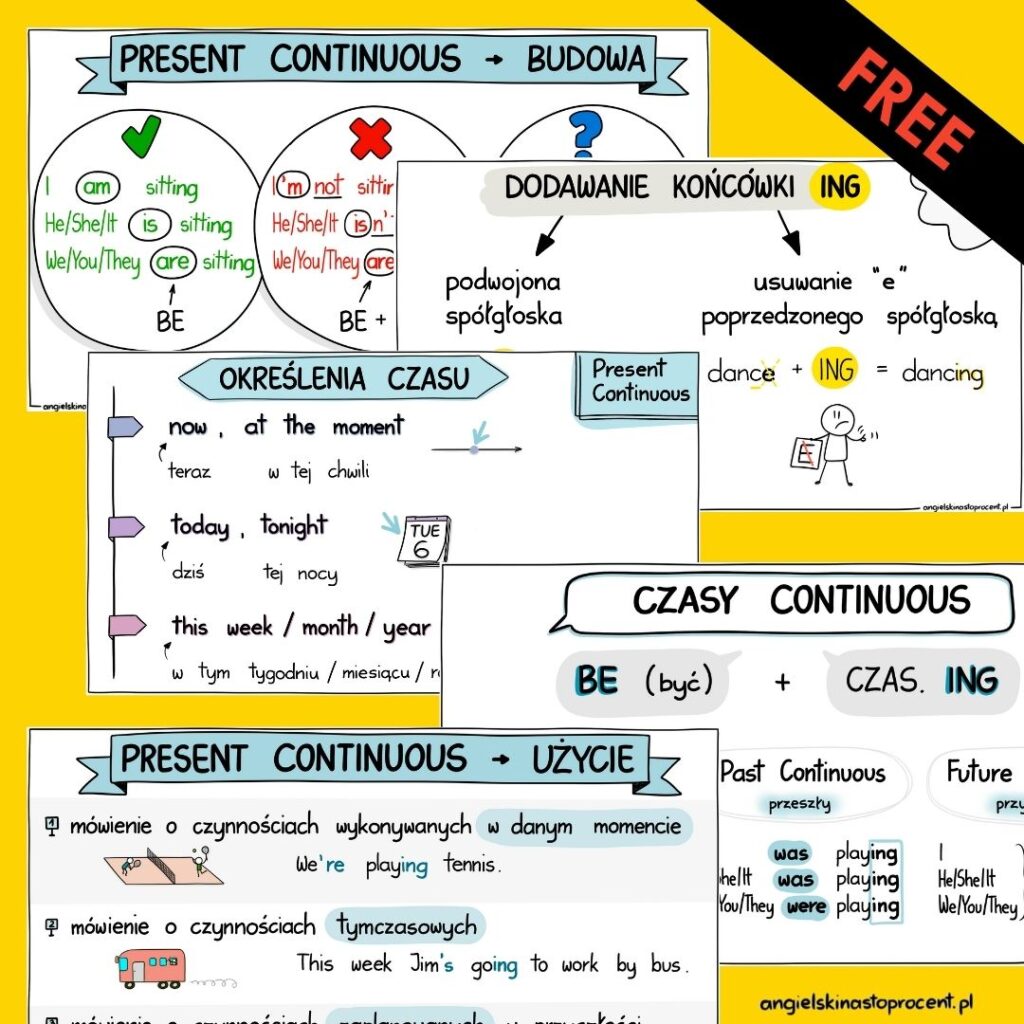 FREE
PRESENT CONTINUOUS → BUDOWA
I am sitting
He/She/It is sitting
We/You/They are sitting
BE
I'm not
He/She/It isn'
We/You/They are
BE +
?
angielskina
DODAWANIE KOŃCÓWKI ING
podwojona
spółgłoska
usuwanie "e"
poprzedzonego spółgłoską
dance + ING = dancing
E
angielskinastoprocent.pl
OKREŚLENIA CZASU
Present
Continuous
now, at the moment
teraz w tej chwili
today, tonight
dziś tej nocy
TUE
6
this week / month / year
w tym tygodniu / miesiącu /
CZASY CONTINUOUS
BE (być) + CZAS. ING
Past Continuous
przeszły
was playing
he/It was playing
You/They were playing
Future
I
He/She/It
We/You/They
PRESENT CONTINUOUS → UŻYCIE
1 mówienie o czynnościach wykonywanych w danym momencie
We're playing tennis.
2 mówienie o czynnościach tymczasowych
This week Jim's going to work by bus.
3 mówienie o czynnościach zaplanowanych w przyszłości
angielskinastoprocent.pl